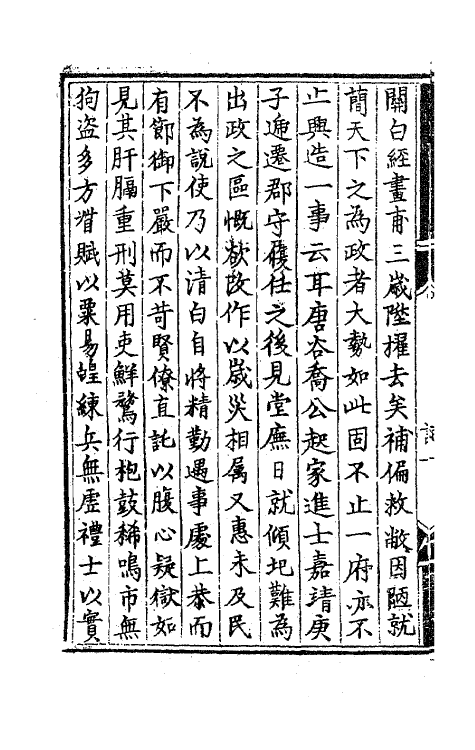 關白經畫甫三歲陞擢去矣補偏救敝因陋就
蕳天下之為政者大勢如此固不止一府亦不
止興造一事云耳唐谷喬公起家進士嘉靖庚
子遞遷郡守履任之後見堂廡日就傾圮難為
出政之區慨欲改作以歲災相属又惠未及民
不為說使乃以清白自將精勤遇事處上恭而
有節御下嚴而不苛賢僚直託以腹心疑獄如
見其肝膈重刑莫用吏鮮驚行枹鼓稀鳴市無
狗盗多方措賦以粟易蝗練兵無虛禮士以實